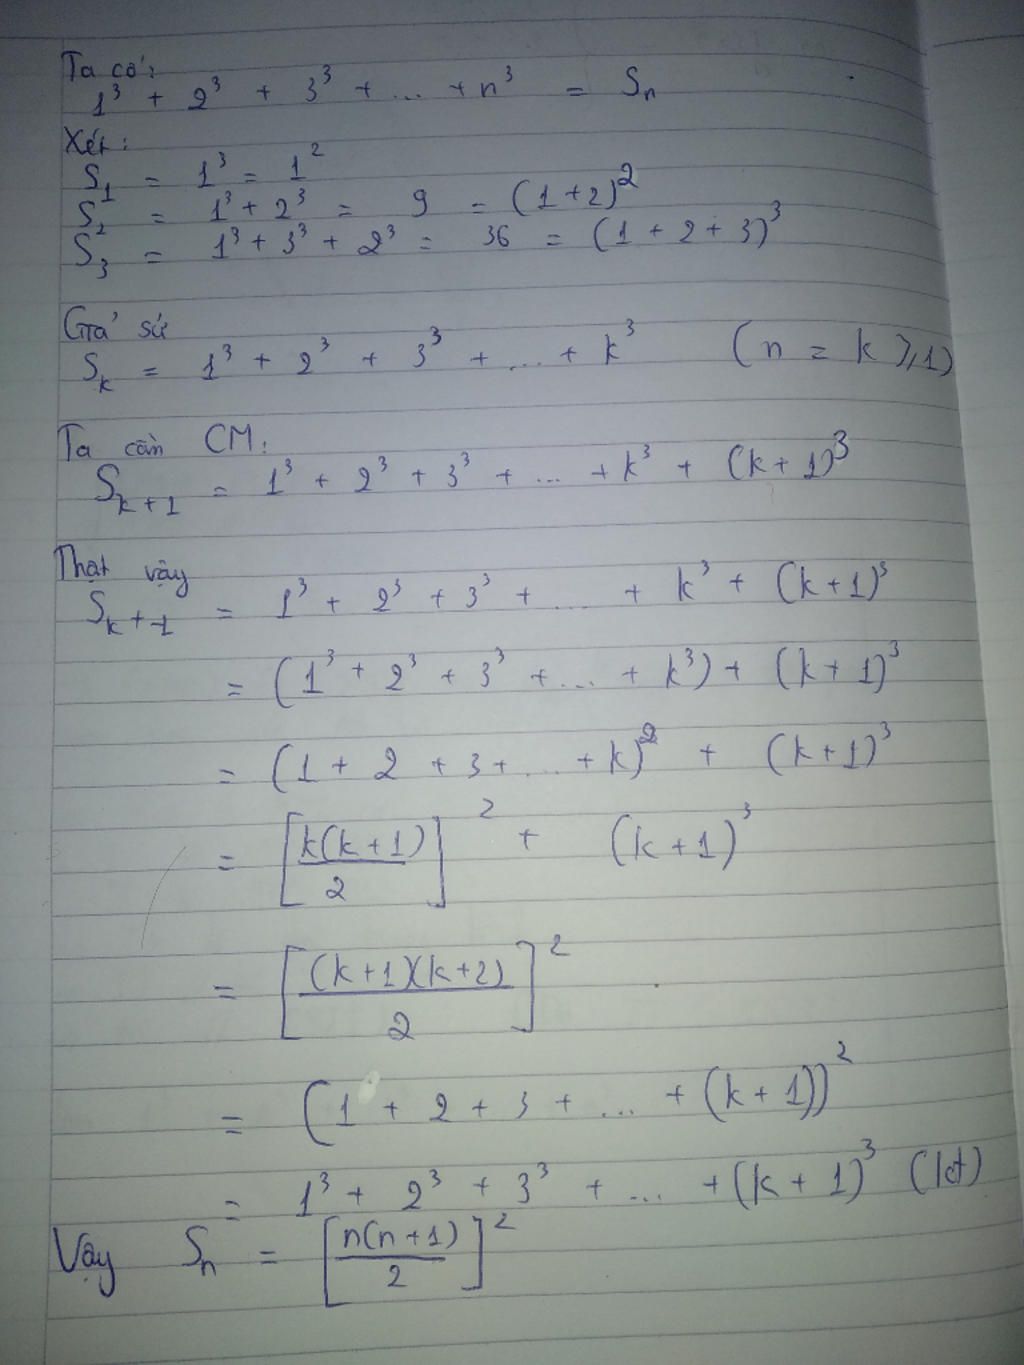 Ta có:
1³ + 2³ + 3³ + ... + n³ = Sₙ
Xét:
S₁ = 1³ = 1²
S₂ = 1³ + 2³ = 9 = (1+2)²
S₃ = 1³ + 3³ + 2³ = 36 = (1 + 2 + 3)³
Gỉa sử
Sₖ = 1³ + 2³ + 3³ + ... + k³ (n = k ⩾ 1)
Ta cần CM:
Sₖ₊₁ = 1³ + 2³ + 3³ + ... + k³ + (k+1)³
Thật vậy
Sₖ₊₁ = 1³ + 2³ + 3³ + ... + k³ + (k+1)³
= (1³ + 2³ + 3³ + ... + k³) + (k+1)³
= (1 + 2 + 3 + ... + k)² + (k+1)³
= [k(k+1)/2]² + (k+1)³
= [(k+1)(k+2)/2]²
= (1 + 2 + 3 + ... + (k+1))²
= 1³ + 2³ + 3³ + ... + (k+1)³
Vậy Sₙ = [n(n+1)/2]²